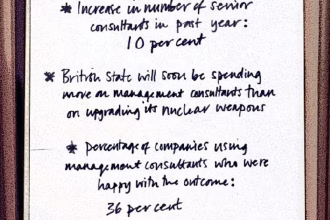 * Increase in number of senior
consultants in past year:
10 per cent
* British State will soon be spending
more on management consultants than
on upgrading its nuclear weapons
* Percentage of companies using
management consultants who were
happy with the outcome:
36 per cent